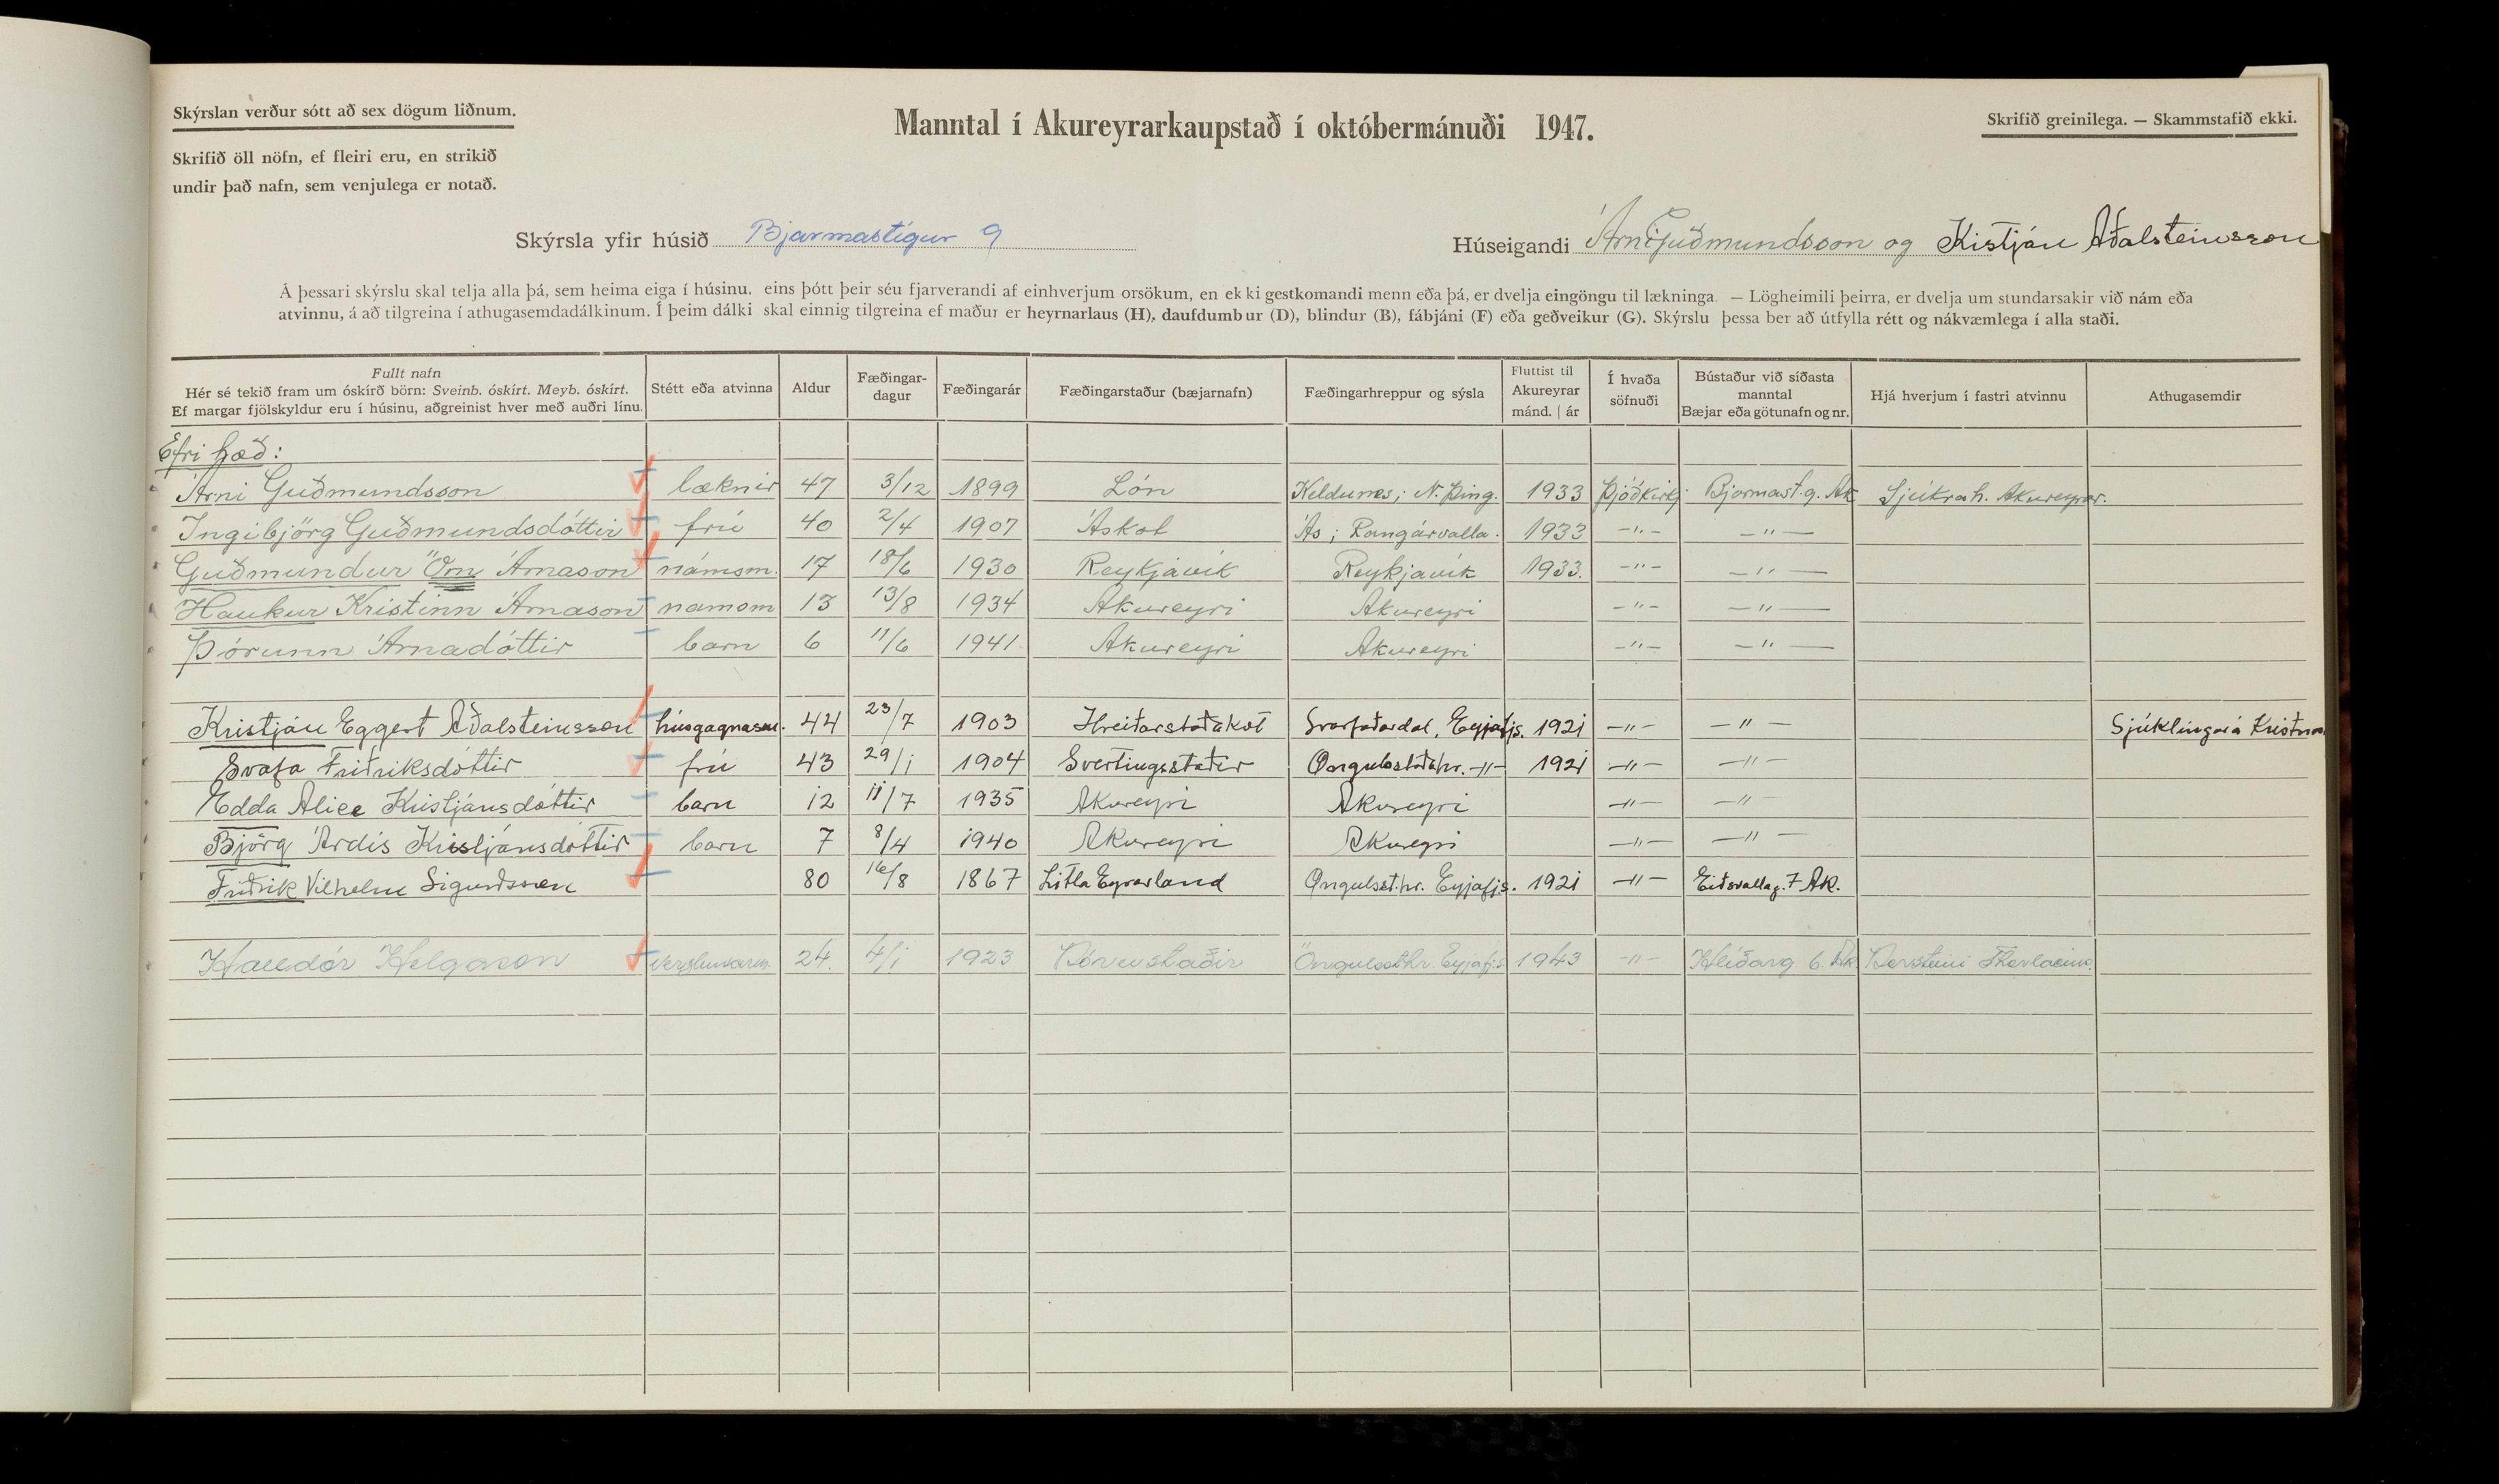 Skýrslan verður sótt að sex dögum liðnum.
Manntal í Akureyrarkaupstað í októbermánuði 1947.
Skrifið greinilega. — Skammstafið ekki.
Skrifið öll nöfn, ef fleiri eru, en strikið
undir það nafn, sem venjulega er notað.
Skýrsla yfir húsið Bjarmastígur 9
Húseigandi Árni Guðmundsson og Kistján Aðalsteinsson
Á þessari skýrslu skal telja alla þá, sem heima eiga í húsinu, eins þótt þeir séu fjarverandi af einhverjum orsökum, en ekki gestkomandi menn eða þá, er dvelja eingöngu til lækninga. — Lögheimili þeirra, er dvelja um stundarsakir við nám eða
atvinnu, á að tilgreina í athugasemdadálkinum. Í þeim dálki skal einnig tilgreina ef maður er heyrnarlaus (H), daufdumbur (D), blindur (B), fábjáni (F) eða geðveikur (G). Skýrslu þessa ber að útfylla rétt og nákvæmlega í alla staði.
Fullt nafn
Hér sé tekið fram um óskírð börn: Sveinb. óskírt. Meyb. óskírt.
Ef margar fjölskyldur eru í húsinu, aðgreinist hver með auðri línu.
Stétt eða atvinna
Aldur
Fæðingar-
dagur
Fæðingarár
Fæðingarstaður (bæjarnafn)
Fæðingarhreppur og sýsla
Fluttist til
Akureyrar
mánd. | ár
Í hvaða
söfnuði
Bústaður við síðasta
manntal
Bæjar eða götunafn og nr.
Hjá hverjum í fastri atvinnu
Athugasemdir
Efri hæð:
Árni Guðmundsson læknir 47 3/12 1899 Lón Keldunes; N. Þing. 1933 Þjóðkirkj. Bjarmast. 9. Ak Sjúkrah. Akureyrar.
Ingibjörg Guðmundsdóttir frú 40 2/4 1907 Áskot Ás; Rangárvalla. 1933 —"— —"—
Guðmundur Örn Árnason námsm. 17 18/6 1930 Reykjavík Reykjavík 1933. —"— —"—
Haukur Kristinn Árnason námsm 13 13/8 1934 Akureyri Akureyri —"— —"—
Þórunn Árnadóttir barn 6 11/6 1941 Akureyri Akureyri —"— —"—
Kristján Eggert Aðalsteinsson húsgagnasm. 44 23/7 1903 Hreiðarstaðakot Svarfaðardal, Eyjafjs. 1921 —"— —"— Sjúklingur á
Svafa Friðriksdóttir frú 43 29/1 1904 Svertingsstaðir Öngulsstaðahr. —"— 1921 —"— —"—
Edda Alice Kristjánsdóttir barn 12 11/7 1935 Akureyri Akureyri —"— —"—
Björg Árdís Kristjánsdóttir barn 7 8/4 1940 Akureyri Akureyri —"— —"—
Friðrik Vilhelm Sigurðsson 80 16/8 1867 Litla Eyrarland Öngulsst.hr. Eyjafjs. 1921 —"— Eiðsvallag. 7 Ak.
Halldór Helgason verzlunarm. 24. 4/1 1923 Þórustaðir Öngulsst.hr. Eyjafj.s. 1943 —"— Hlíðarg 6. Ak